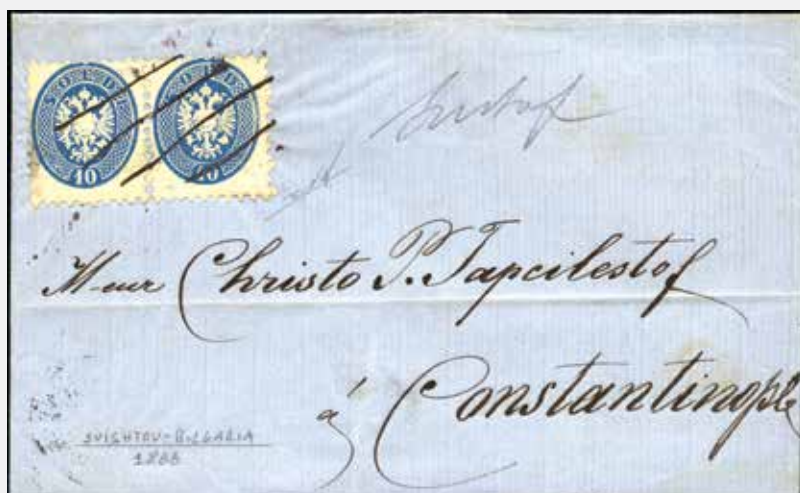 SOLDI SOLDI
10 10
M-eur Christo P. Tapcilestof
à Constantinople
SVISHTOV-BULGARIA